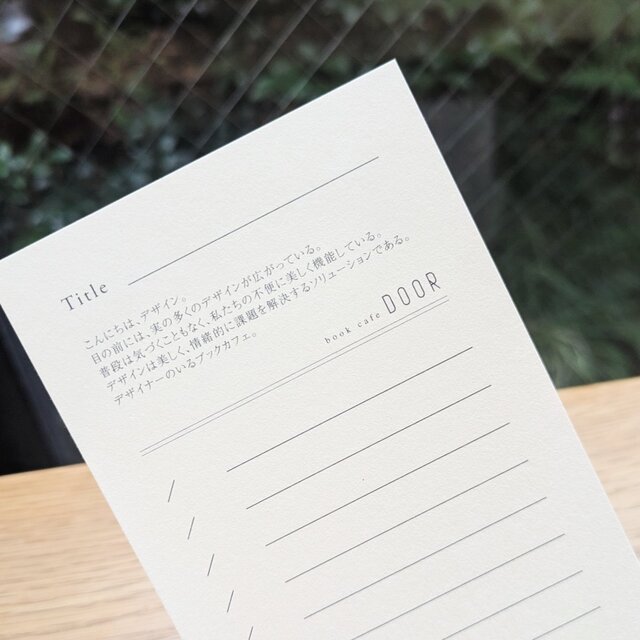 Title
こんにちは、デザイン。
目の前には、実の多くのデザインが広がっている。
普段は気づくこともなく、私たちの不便に美しく機能している。
デザインは美しく、情緒的に課題を解決するソリューションである。
デザイナーのいるブックカフェ。
book cafe DOOR
/
/
/
/
/